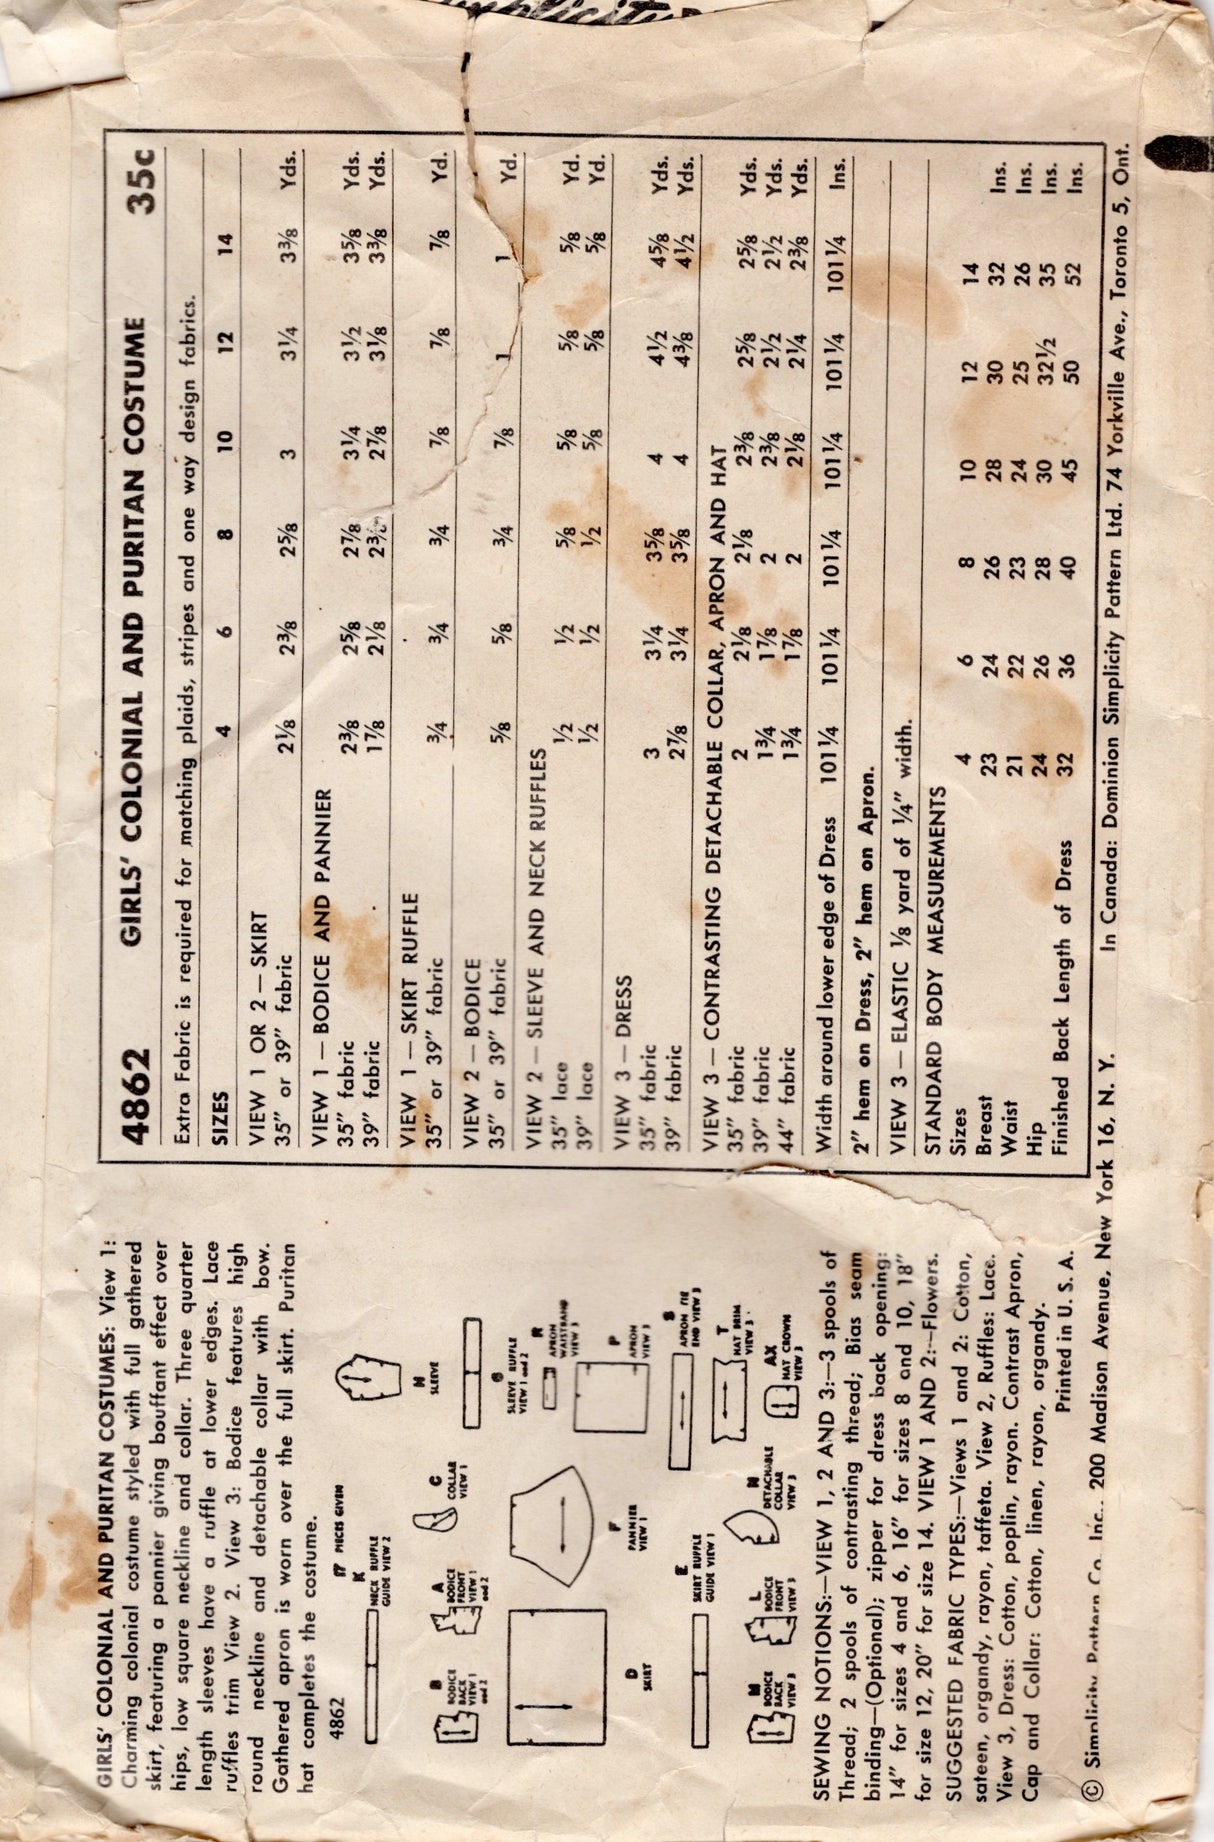 GIRLS' COLONIAL AND PURITAN COSTUMES: View 1:
Charming colonial costume styled with full gathered
skirt, featuring a pannier giving bouffant effect over
hips, low square neckline and collar. Three quarter
length sleeves have a ruffle at lower edges. Lace
ruffles trim View 2. View 3: Bodice features high
round neckline and detachable collar with bow.
Gathered apron is worn over the full skirt. Puritan
hat completes the costume.
4862
17 PIECES GIVEN
K
NECK RUFFLE
GUIDE VIEW 2
SLEEVE
B
BODICE
BACK
VIEW 1
and 2
A
BODICE
FRONT
VIEW 1
and 2
C
COLLAR
VIEW 1
G
SLEEVE RUFFLE
VIEW 1 and 2
R
APRON
WAISTBAND
VIEW 3
D
SKIRT
F
PANNIER
VIEW 1
P
APRON
VIEW 3
E
SKIRT RUFFLE
GUIDE VIEW 1
S
APRON TIE
END VIEW 3
M
BODICE
BACK
VIEW 3
L
BODICE
FRONT
VIEW 3
N
DETACHABLE
COLLAR
VIEW 3
T
HAT BRIM
VIEW 3
AX
HAT CROWN
VIEW 3
SEWING NOTIONS:—VIEW 1, 2 AND 3:—3 spools of
Thread; 2 spools of contrasting thread; Bias seam
binding—(Optional); zipper for dress back opening:
14" for sizes 4 and 6, 16" for sizes 8 and 10, 18"
for size 12, 20" for size 14. VIEW 1 AND 2:—Flowers.
SUGGESTED FABRIC TYPES:—Views 1 and 2: Cotton,
sateen, organdy, rayon, taffeta. View 2, Ruffles: Lace.
View 3, Dress: Cotton, poplin, rayon. Contrast Apron,
Cap and Collar: Cotton, linen, rayon, organdy.
Printed in U. S. A.
4862 GIRLS' COLONIAL AND PURITAN COSTUME 35c
Extra Fabric is required for matching plaids, stripes and one way design fabrics.
SIZES 4 6 8 10 12 14
VIEW 1 OR 2 — SKIRT
35" or 39" fabric 2⅛ 2⅜ 2⅝ 3 3¼ 3⅜ Yds.
VIEW 1 — BODICE AND PANNIER
35" fabric 2⅜ 2⅝ 2⅞ 3¼ 3½ 3⅝ Yds.
39" fabric 1⅞ 2⅛ 2⅜ 2⅞ 3⅛ 3⅜ Yds.
VIEW 1 — SKIRT RUFFLE
35" or 39" fabric ¾ ¾ ¾ ⅞ ⅞ ⅞ Yd.
VIEW 2 — BODICE
35" or 39" fabric ⅝ ⅝ ¾ ⅞ 1 1 Yd.
VIEW 2 — SLEEVE AND NECK RUFFLES
35" lace ½ ½ ⅝ ⅝ ⅝ ⅝ Yd.
39" lace ½ ½ ½ ⅝ ⅝ ⅝ Yd.
VIEW 3 — DRESS
35" fabric 3 3¼ 3⅝ 4 4½ 4⅝ Yds.
39" fabric 2⅞ 3¼ 3⅝ 4 4⅜ 4½ Yds.
VIEW 3 — CONTRASTING DETACHABLE COLLAR, APRON AND HAT
35" fabric 2 2⅛ 2⅛ 2⅜ 2⅝ 2⅝ Yds.
39" fabric 1¾ 1⅞ 2 2⅜ 2½ 2½ Yds.
44" fabric 1¾ 1⅞ 2 2⅛ 2¼ 2⅜ Yds.
Width around lower edge of Dress 101¼ 101¼ 101¼ 101¼ 101¼ 101¼ Ins.
2" hem on Dress, 2" hem on Apron.
VIEW 3 — ELASTIC ⅛ yard of ¼" width.
STANDARD BODY MEASUREMENTS
Sizes 4 6 8 10 12 14
Breast 23 24 26 28 30 32 Ins.
Waist 21 22 23 24 25 26 Ins.
Hip 24 26 28 30 32½ 35 Ins.
Finished Back Length of Dress 32 36 40 45 50 52 Ins.
© Simplicity Pattern Co. Inc., 200 Madison Avenue, New York 16, N. Y. In Canada: Dominion Simplicity Pattern Ltd. 74 Yorkville Ave., Toronto 5, Ont.